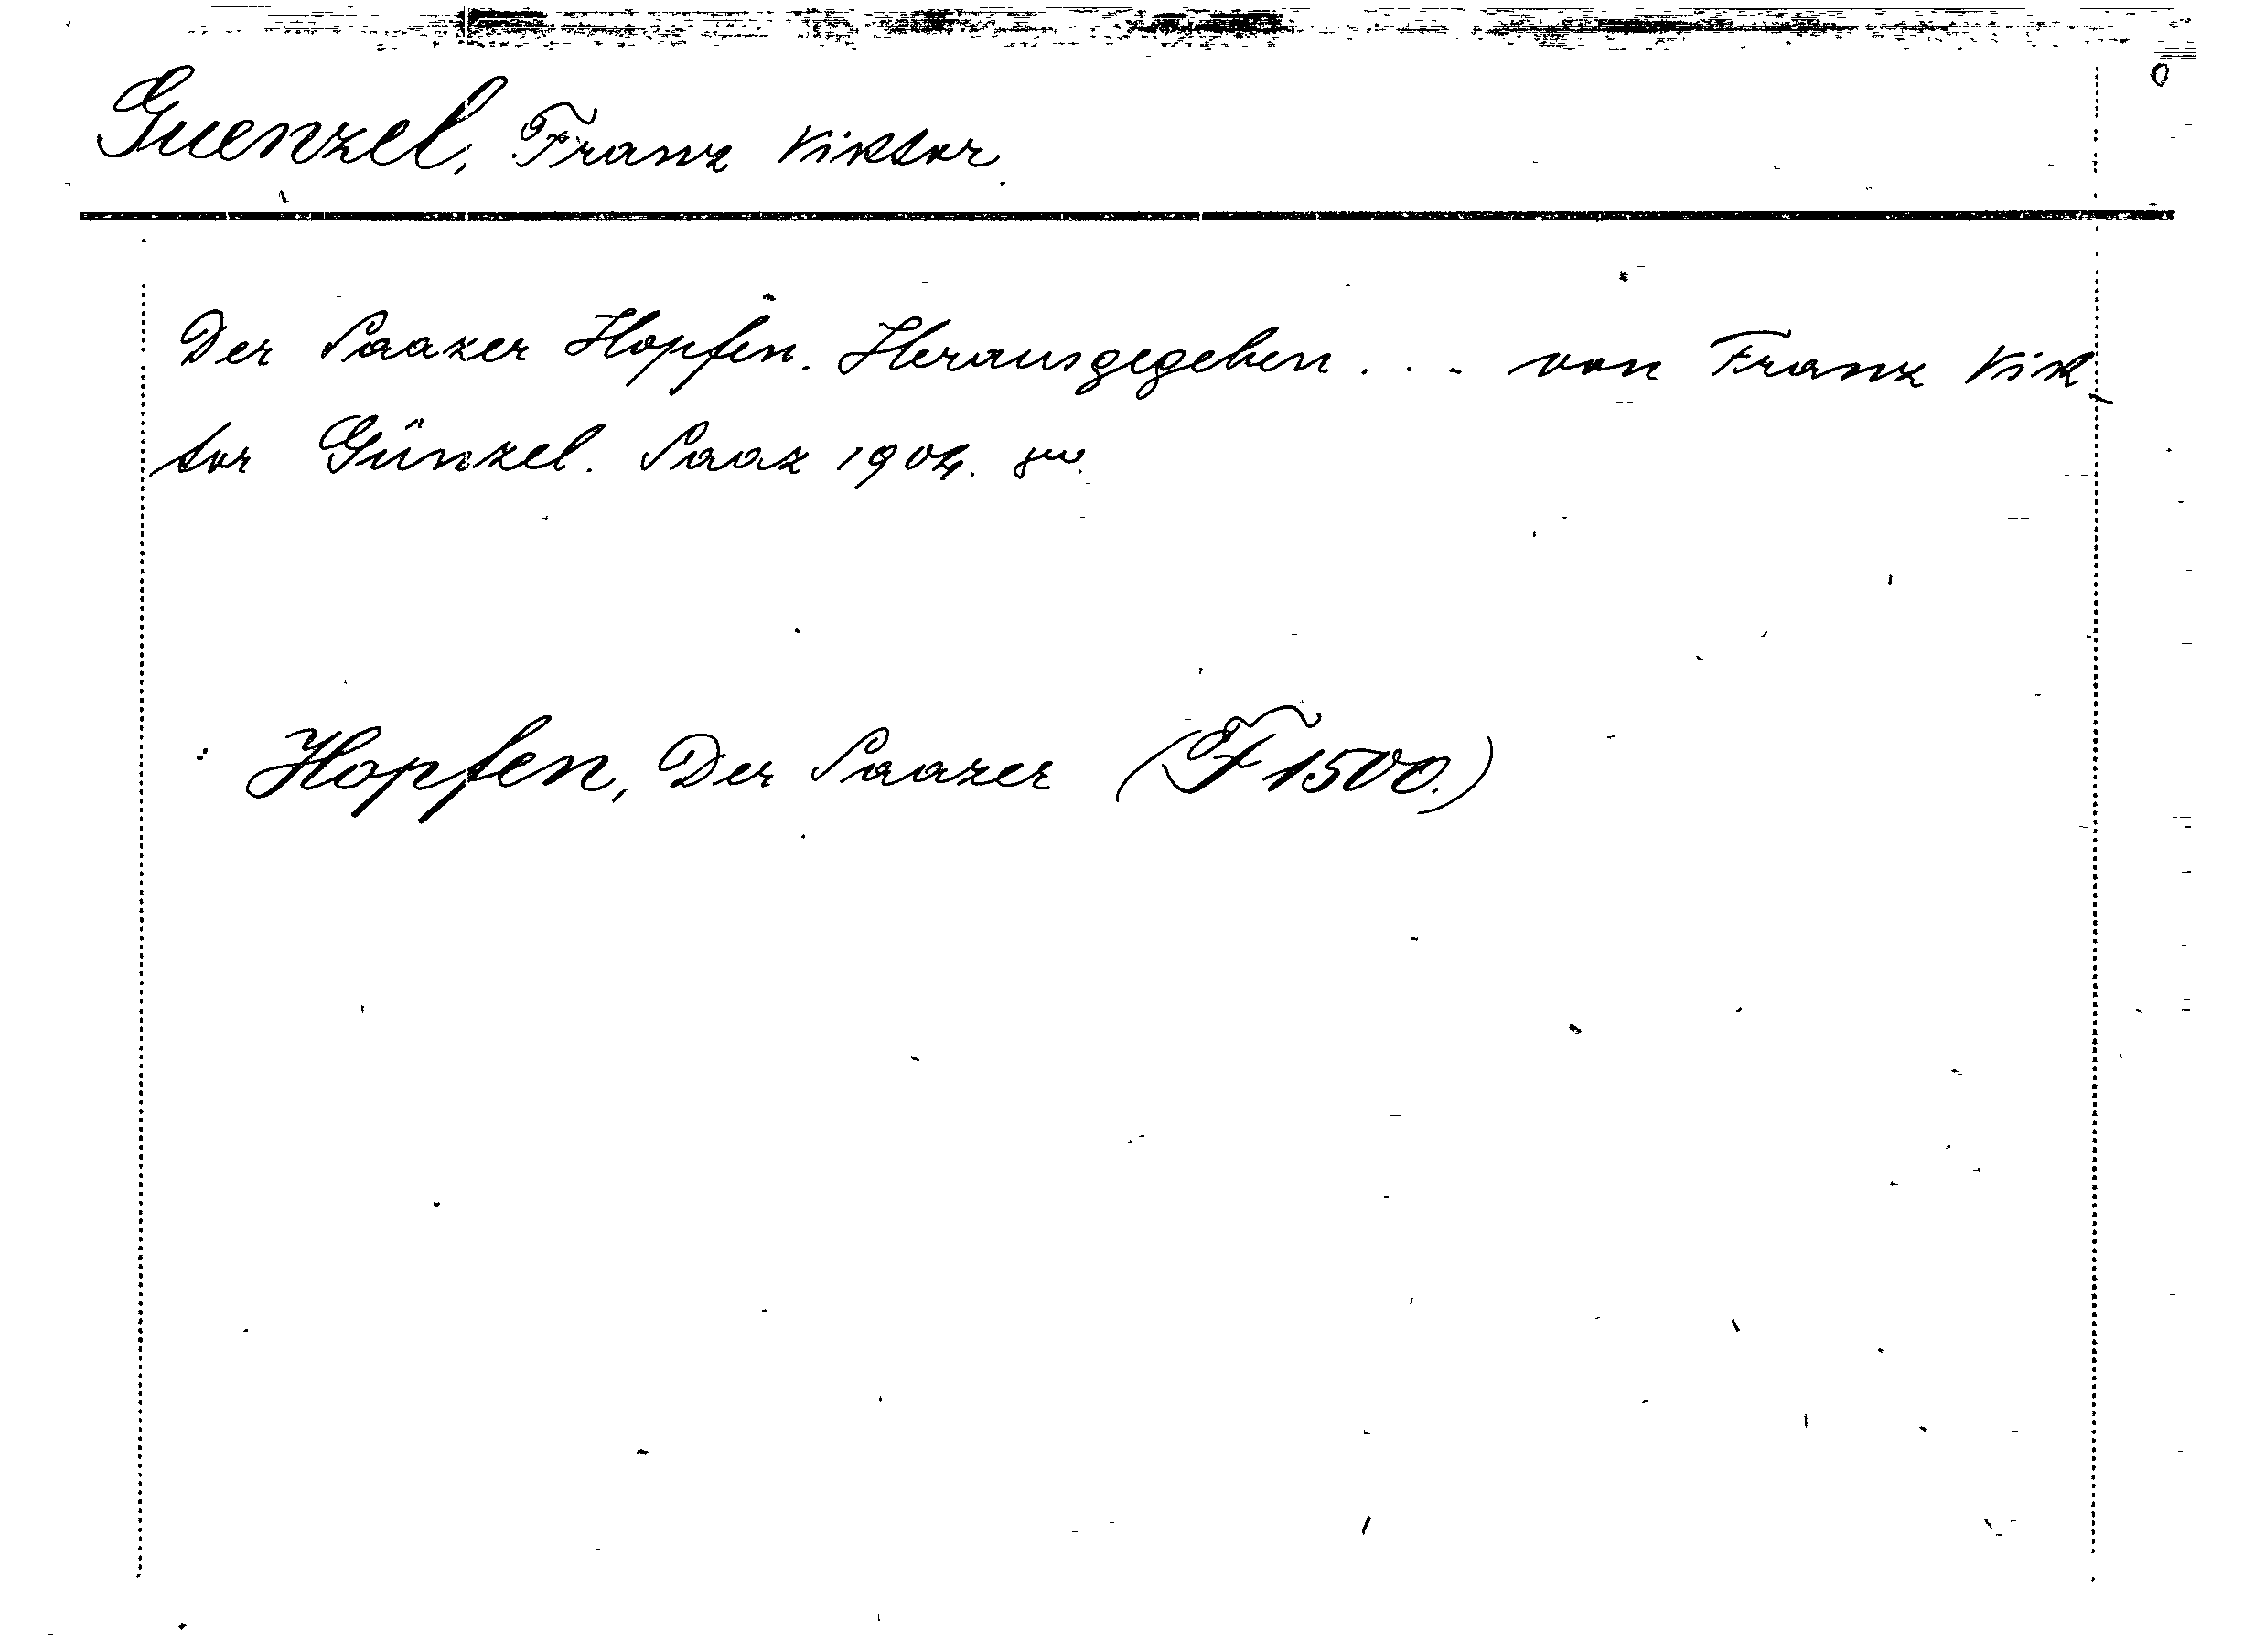 Guenzel, Franz Viktor
Der Saazer Hopfen. Herausgegeben ... von Franz Vik-
tor Günzel. Saaz 1904. 8vo.
: Hopfen, Der Saazer (F 1500.)